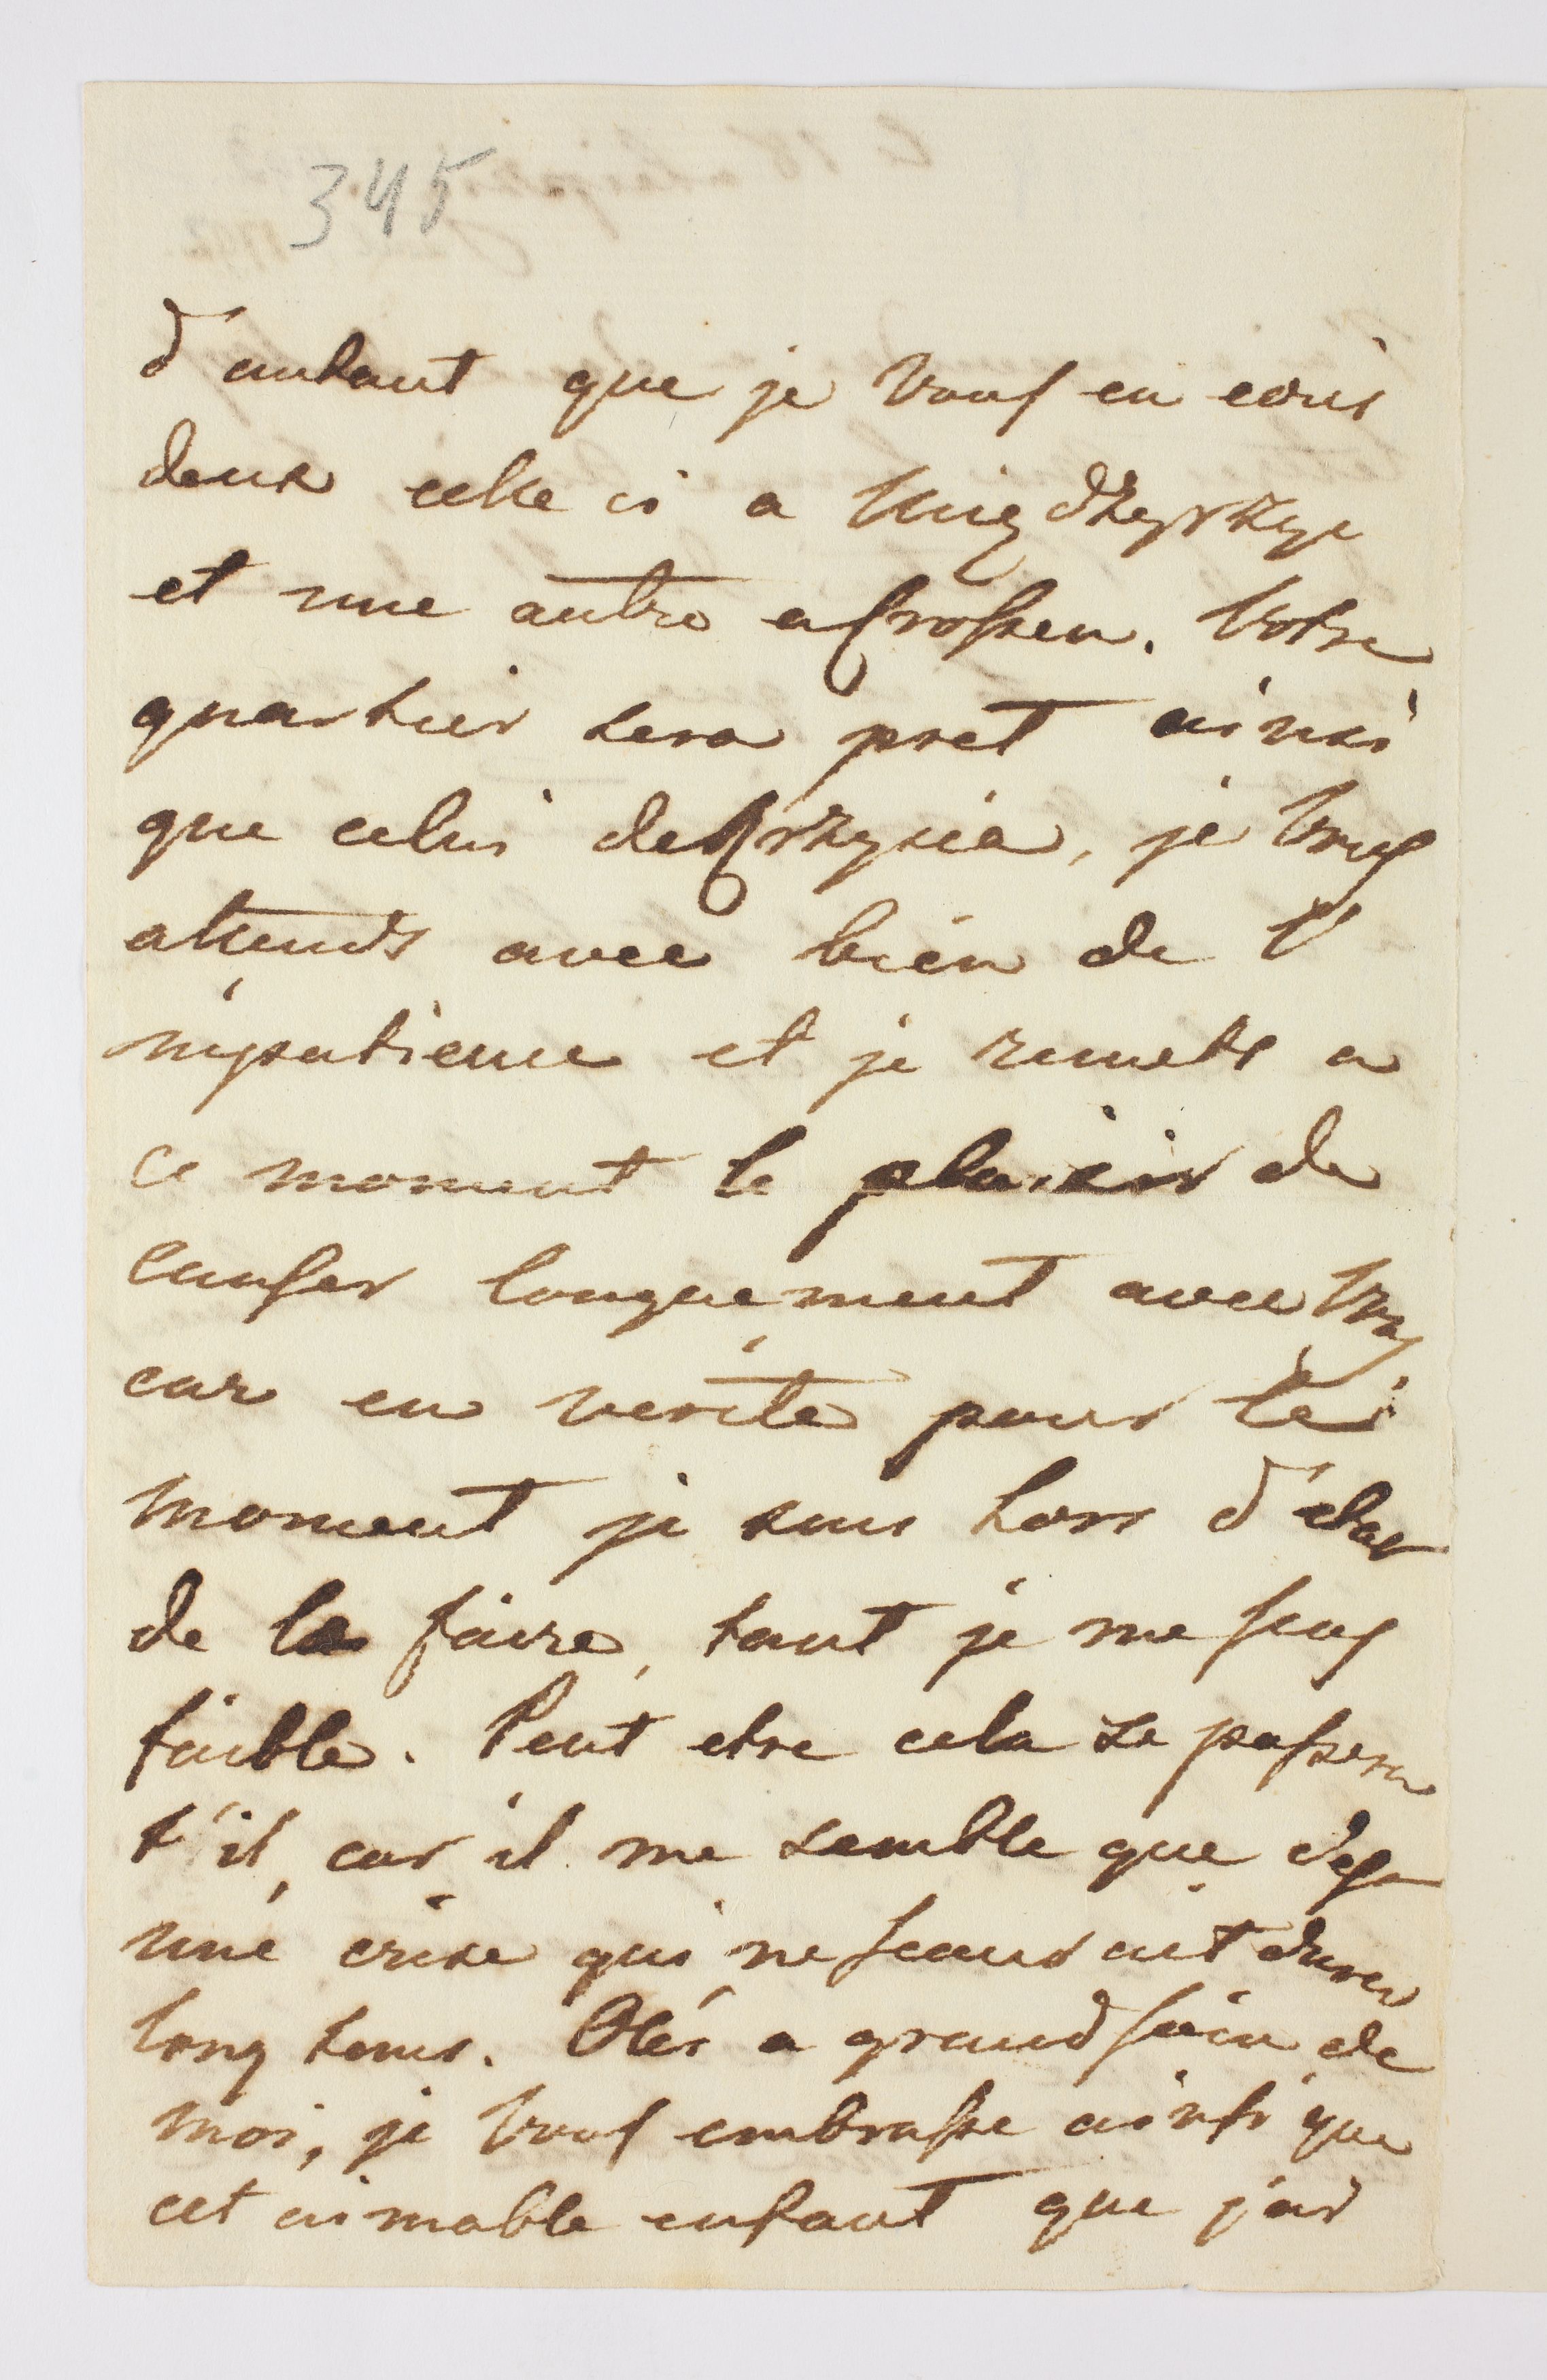 345
d'autant que je vous en ecris
deux celle ci a Miedzyrzyc
et une autre a Crossen. Votre
quartier sera pret ainsi
que celui de Krzysia, je vous
attends avec bien de l'
mpatience et je remets a
ce moment le plaisir de
causer longuement avec vous
car en verite pour le
moment je suis hors d'etat
de le faire, tant je me sens
faible. Peut etre cela se passera
t'il, car il me semble que c'est
une crise qui ne scauroit durer
long tems. Olés a grand soin de
moi, je vous embrasse ainsi que
cet aimable enfant que j'ai